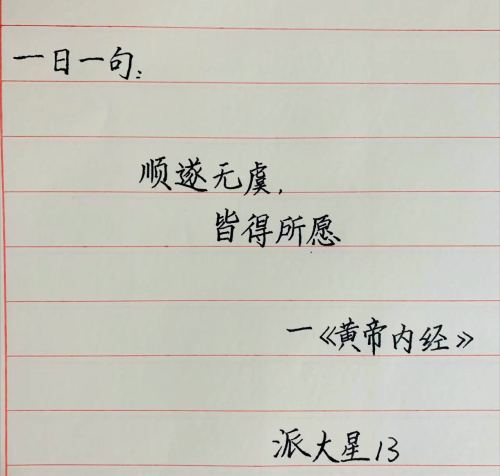 一日一句:
顺遂无虞,
皆得所愿
一《黄帝内经》
派大星13